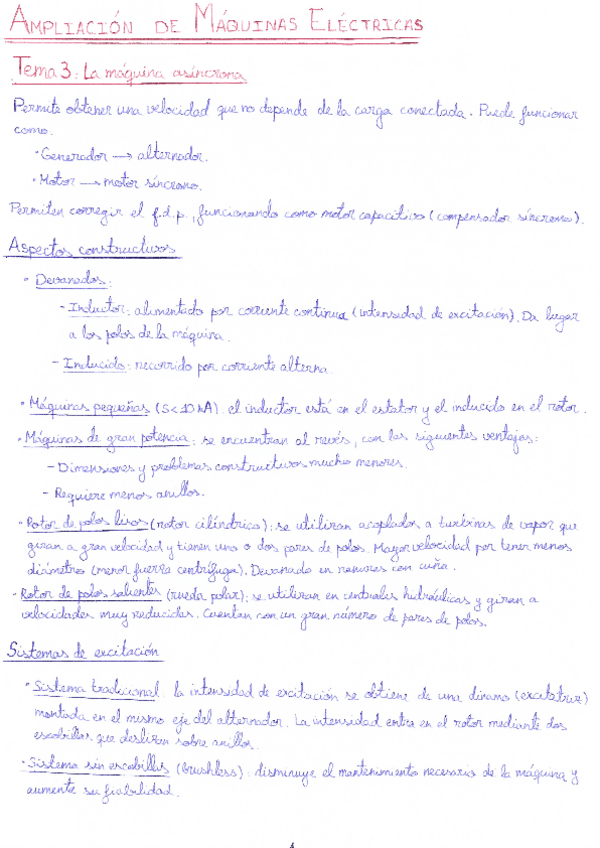 AMPLIACIÓN DE MÁQUINAS ELÉCTRICAS
Tema 3: La máquina asíncrona
Permite obtener una velocidad que no depende de la carga conectada. Puede funcionar
como:
· Generador → alternador.
· Motor → motor síncrono.
Permiten corregir el f.d.p., funcionando como motor capacitivo (compensador síncrono).
Aspectos constructivos
· Devanados:
- Inductor: alimentado por corriente continua (intensidad de excitación). Da lugar
a los polos de la máquina.
- Inducido: recorrido por corriente alterna.
· Máquinas pequeñas (S<10 kA): el inductor está en el estator y el inducido en el rotor.
· Máquinas de gran potencia: se encuentran al revés, con las siguientes ventajas:
- Dimensiones y problemas constructivos mucho menores.
- Requiere menos anillos.
· Rotor de polos lisos (rotor cilíndrico): se utilizan acoplados a turbinas de vapor que
giran a gran velocidad y tienen uno o dos pares de polos. Mayor velocidad por tener menos
diámetro (menor fuerza centrífuga). Devanado en ranuras con cuña.
· Rotor de polos salientes (rueda polar): se utilizan en centrales hidráulicas y giran a
velocidades muy reducidas. Cuentan con un gran número de pares de polos.
Sistemas de excitación
· Sistema tradicional: la intensidad de excitación se obtiene de una dinamo (excitatriz)
montada en el mismo eje del alternador. La intensidad entra en el rotor mediante dos
escobillas que deslizan sobre anillos.
· Sistema sin escobillas (brushless): disminuye el mantenimiento necesario de la máquina y
aumenta su fiabilidad.
1